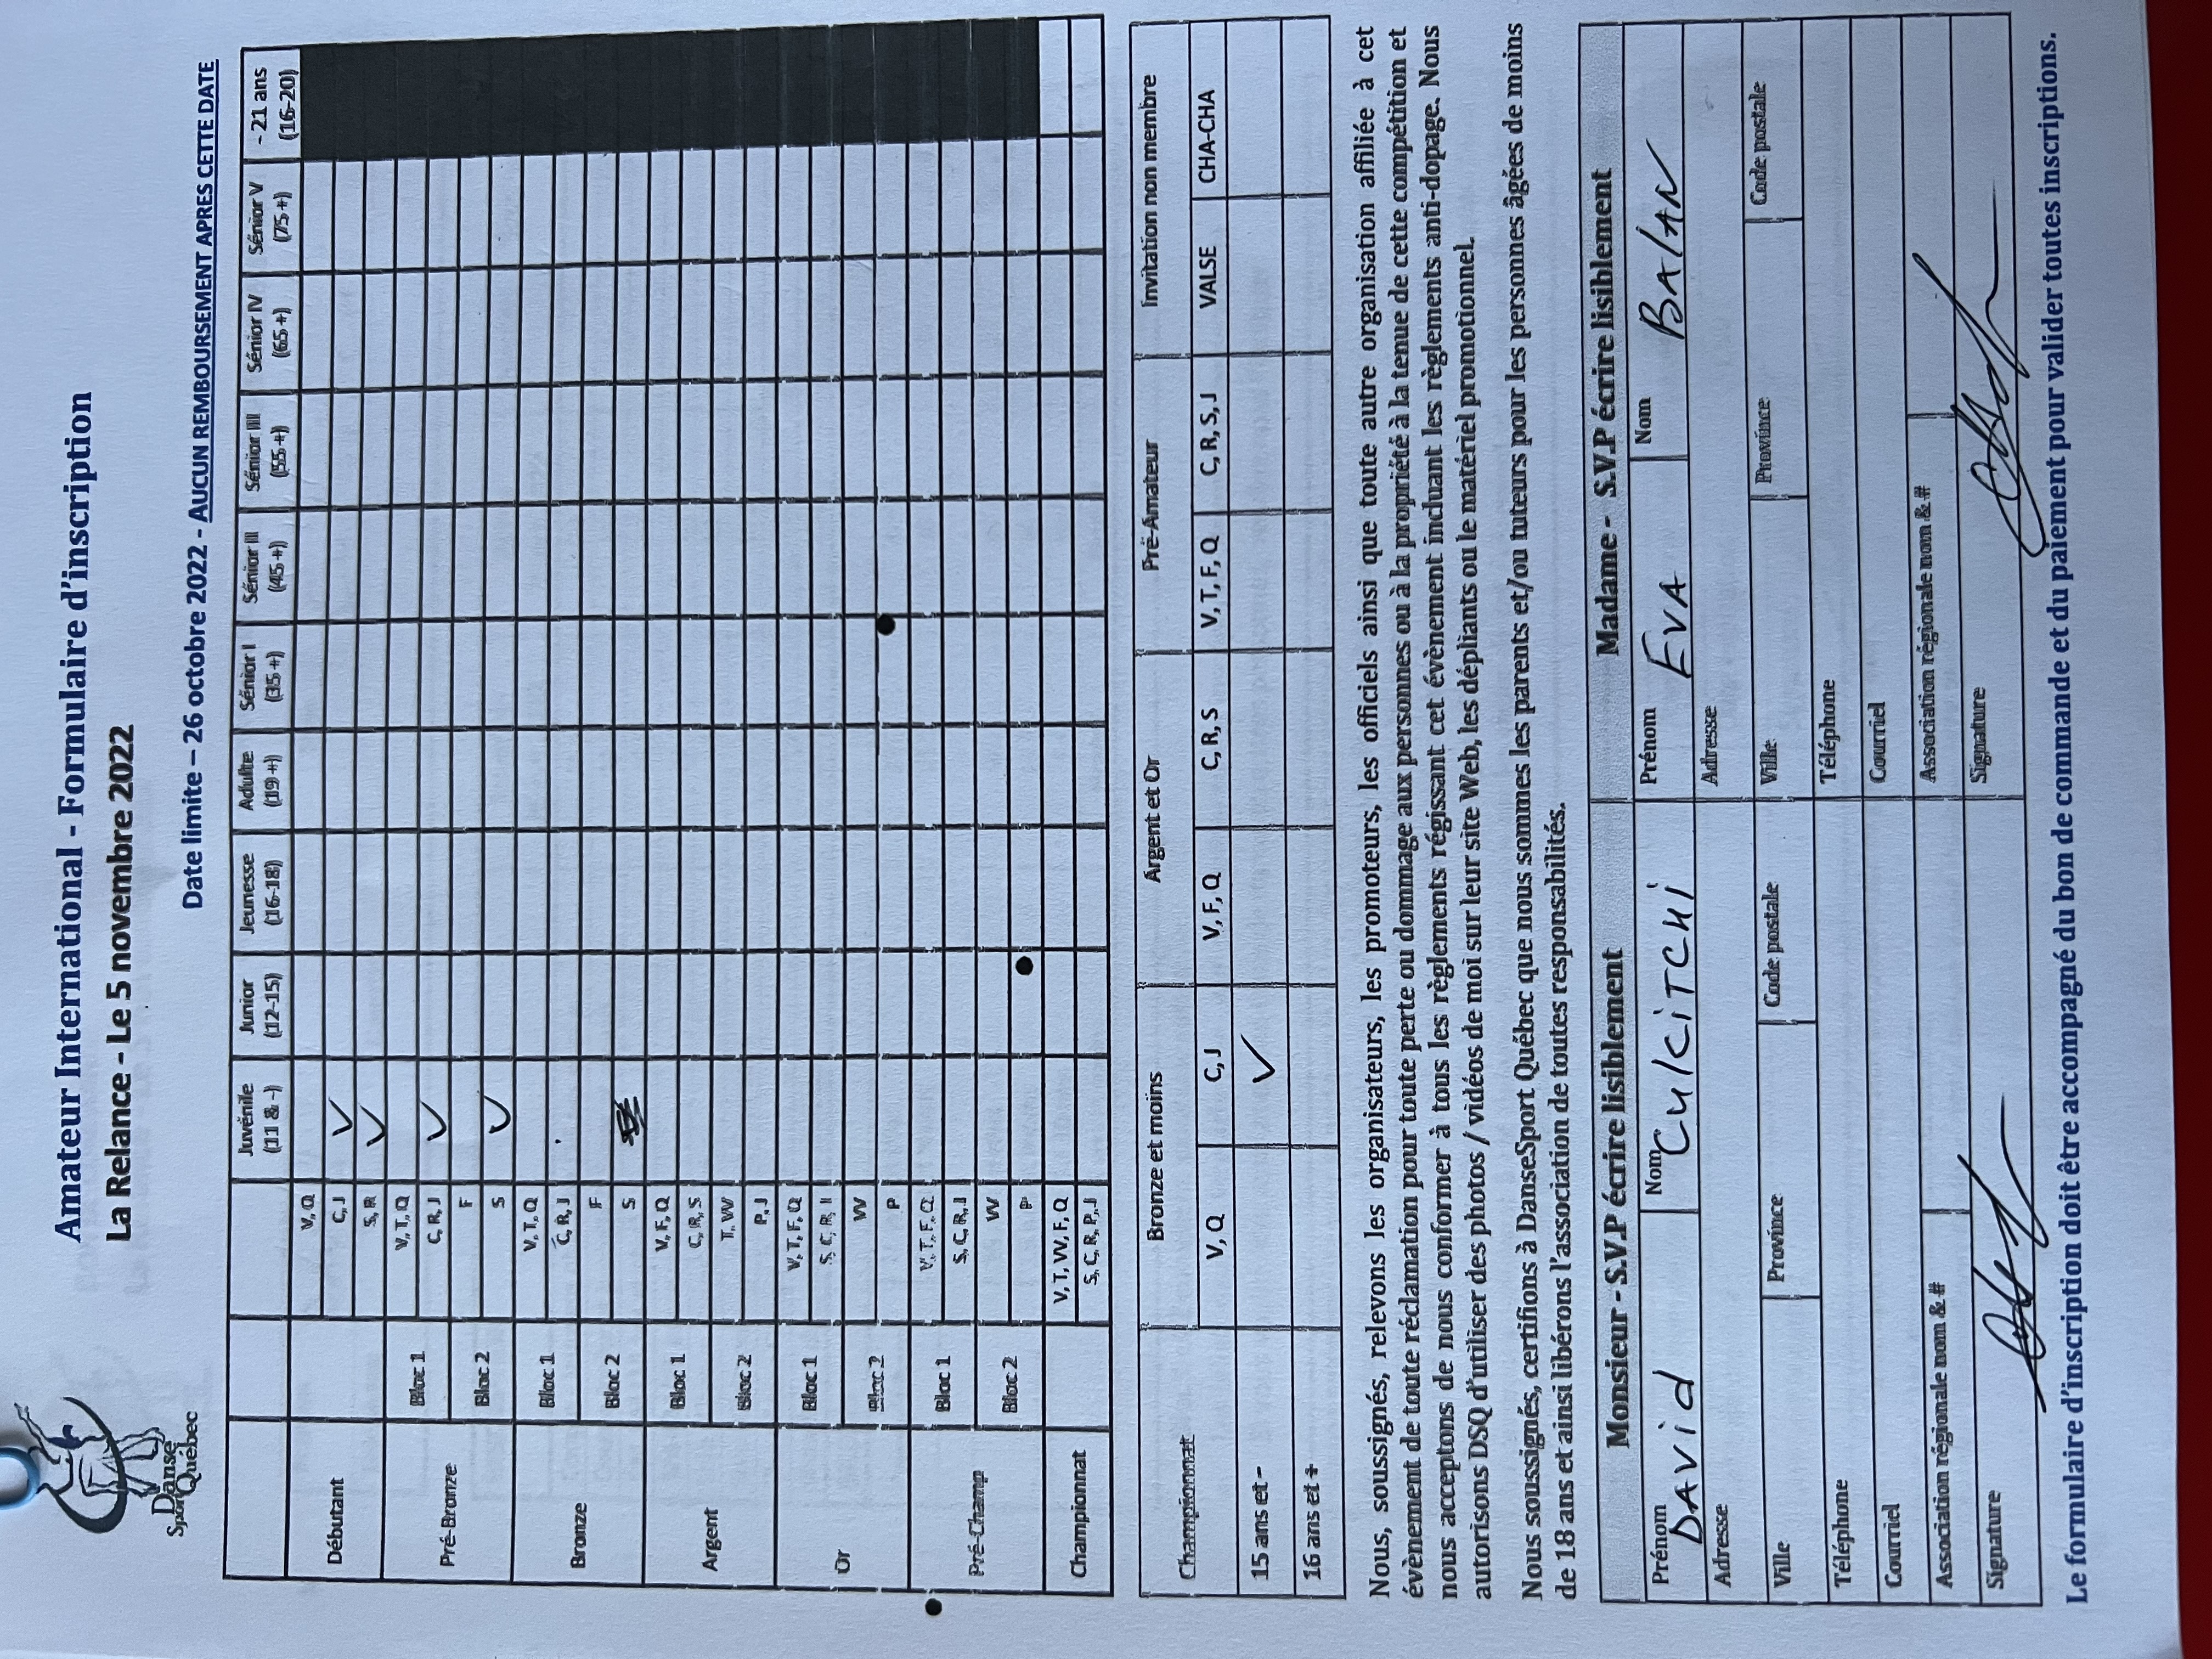 Danse
Sport Québec
Amateur International - Formulaire d'inscription
La Relance - Le 5 novembre 2022
Date limite – 26 octobre 2022 - AUCUN REMBOURSEMENT APRES CETTE DATE
Juvénile (11 & -) Junior (12-15) Jeunesse (16-18) Adulte (19 +) Sénior I (35 +) Sénior II (45 +) Sénior III (55 +) Sénior IV (65 +) Sénior V (75 +) - 21 ans (16-20)
Débutant
V, Q
C, J ✓
S, R ✓
Pré-Bronze
Bloc 1
V, T, Q
C, R, J ✓
Bloc 2
F
S ✓
Bronze
Bloc 1
V, T, Q
C, R, J
Bloc 2
F
S
Argent
Bloc 1
V, F, Q
C, R, S
Bloc 2
T, W
P, J
Or
Bloc 1
V, T, F, Q
S, C, R, J
Bloc 2
W
P
Pré-Champ
Bloc 1
V, T, F, Q
S, C, R, J
Bloc 2
W
P
Championnat
V, T, W, F, Q
S, C, R, P, J
Championnat Bronze et moins Argent et Or Pré-Amateur Invitation non membre
V, Q C, J V, F, Q C, R, S V, T, F, Q C, R, S, J VALSE CHA-CHA
15 ans et - ✓
16 ans et +
Nous, soussignés, relevons les organisateurs, les promoteurs, les officiels ainsi que toute autre organisation affiliée à cet
évènement de toute réclamation pour toute perte ou dommage aux personnes ou à la propriété à la tenue de cette compétition et
nous acceptons de nous conformer à tous les règlements régissant cet évènement incluant les règlements anti-dopage. Nous
autorisons DSQ d'utiliser des photos / vidéos de moi sur leur site Web, les dépliants ou le matériel promotionnel.
Nous soussignés, certifions à DanseSport Québec que nous sommes les parents et/ou tuteurs pour les personnes âgées de moins
de 18 ans et ainsi libérons l'association de toutes responsabilités.
Monsieur - S.V.P écrire lisiblement Madame - S.V.P écrire lisiblement
Prénom DAVid Nom CulciTCHi Prénom EVA Nom BAlAN
Adresse Adresse
Ville Province Code postale Ville Province Code postale
Téléphone Téléphone
Courriel Courriel
Association régionale nom & # Association régionale nom & #
Signature Signature
Le formulaire d'inscription doit être accompagné du bon de commande et du paiement pour valider toutes inscriptions.